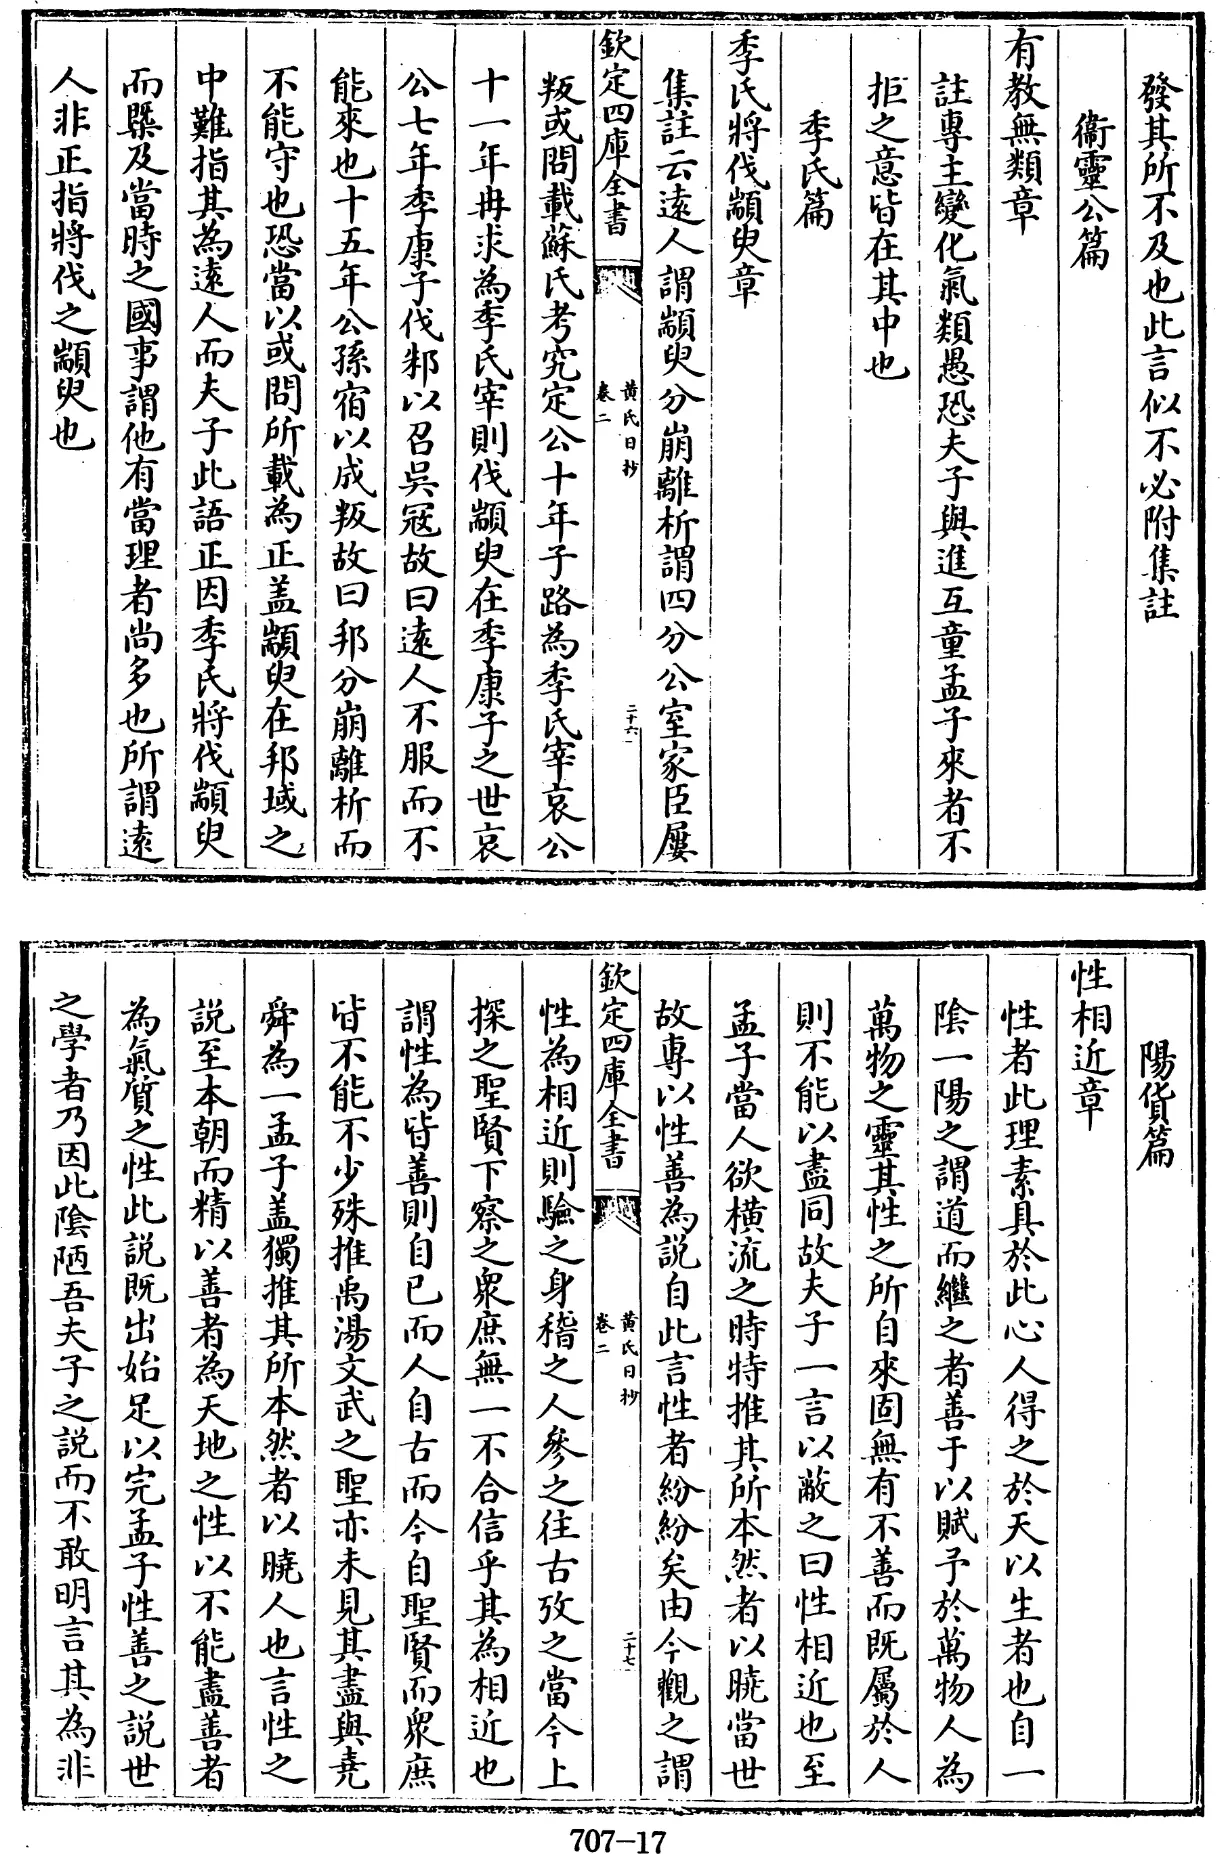 發其所不及也此言似不必附集註
衞靈公篇
有教無類章
註專主變化氣類愚恐夫子與進互童孟子來者不
拒之意皆在其中也
季氏篇
季氏將伐顓臾章
集註云逺人謂顓臾分崩離析謂四分公室家臣屢
欽定四庫全書
黄氏日抄
卷二
二十六
叛或問載蘇氏考究定公十年子路為季氏宰哀公
十一年冉求為季氏宰則伐顓臾在季康子之世哀
公七年季康子伐邾以召吳冦故曰逺人不服而不
能來也十五年公孫宿以成叛故曰邦分崩離析而
不能守也恐當以或問所載為正盖顓臾在邦域之
中難指其為逺人而夫子此語正因季氏將伐顓臾
而槩及當時之國事謂他有當理者尚多也所謂逺
人非正指將伐之顓臾也
陽貨篇
性相近章
性者此理素具於此心人得之於天以生者也自一
隂一陽之謂道而繼之者善于以賦予於萬物人為
萬物之靈其性之所自來固無有不善而既屬於人
則不能以盡同故夫子一言以蔽之曰性相近也至
孟子當人欲橫流之時特推其所本然者以曉當世
故專以性善為説自此言性者紛紛矣由今觀之謂
欽定四庫全書
黄氏日抄
卷二
二十七
性為相近則驗之身稽之人參之往古攷之當今上
探之聖賢下察之衆庶無一不合信乎其為相近也
謂性為皆善則自已而人自古而今自聖賢而衆庶
皆不能不少殊推禹湯文武之聖亦未見其盡與堯
舜為一孟子盖獨推其所本然者以曉人也言性之
説至本朝而精以善者為天地之性以不能盡善者
為氣質之性此説既出始足以完孟子性善之説世
之學者乃因此隂陋吾夫子之説而不敢明言其為非
707-17